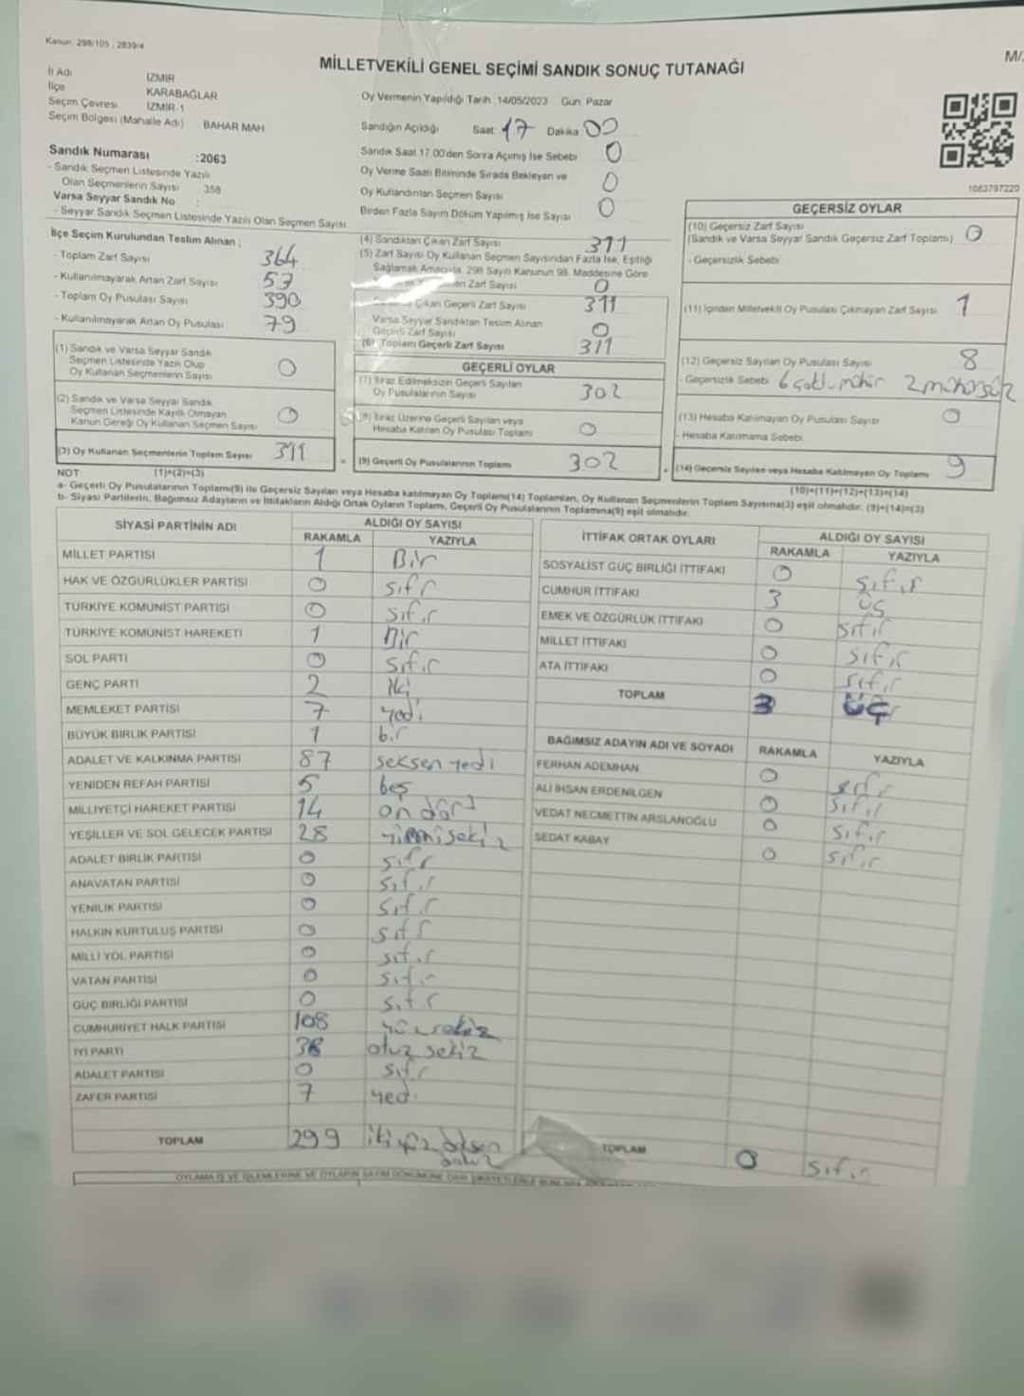 Kanun: 298/105 , 2839/4
MİLLETVEKİLİ GENEL SEÇİMİ SANDIK SONUÇ TUTANAĞI
M/
İl Adı İZMİR
İlçe KARABAĞLAR
Seçim Çevresi İZMİR-1
Seçim Bölgesi (Mahalle Adı) BAHAR MAH
Sandık Numarası :2063
- Sandık Seçmen Listesinde Yazılı
Olan Seçmenlerin Sayısı 358
Varsa Seyyar Sandık No :
- Seyyar Sandık Seçmen Listesinde Yazılı Olan Seçmen Sayısı
Oy Vermenin Yapıldığı Tarih :14/05/2023 Gün: Pazar
Sandığın Açıldığı Saat: 17 Dakika 00
Sandık Saat 17.00'den Sonra Açılmış İse Sebebi 0
Oy Verme Saati Bitiminde Sırada Bekleyen ve 0
Oy Kullandırılan Seçmen Sayısı
Birden Fazla Sayım Döküm Yapılmış İse Sayısı 0
1063797220
İlçe Seçim Kurulundan Teslim Alınan ;
- Toplam Zarf Sayısı 364
- Kullanılmayarak Artan Zarf Sayısı 53
- Toplam Oy Pusulası Sayısı 390
- Kullanılmayarak Artan Oy Pusulası 79
(1) Sandık ve Varsa Seyyar Sandık
Seçmen Listesinde Yazılı Olup
Oy Kullanan Seçmenlerin Sayısı 0
(2) Sandık ve Varsa Seyyar Sandık
Seçmen Listesinde Kayıtlı Olmayan
Kanun Gereği Oy Kullanan Seçmen Sayısı 0
(3) Oy Kullanan Seçmenlerin Toplam Sayısı 311
(1)+(2)=(3)
(4) Sandıktan Çıkan Zarf Sayısı 311
(5) Zarf Sayısı Oy Kullanan Seçmen Sayısından Fazla İse, Eşitliği
Sağlamak Amacıyla, 298 Sayılı Kanunun 98. Maddesine Göre
Zarf Sayısı 0
Çıkan Geçerli Zarf Sayısı 311
Varsa Seyyar Sandıktan Teslim Alınan
Geçerli Zarf Sayısı 0
(6) Toplam Geçerli Zarf Sayısı 311
GEÇERLİ OYLAR
(7) İtiraz Edilmeksizin Geçerli Sayılan
Oy Pusulalarının Sayısı 302
(8) İtiraz Üzerine Geçerli Sayılan veya
Hesaba Katılan Oy Pusulası Toplamı 0
(9) Geçerli Oy Pusulalarının Toplamı 302
GEÇERSİZ OYLAR
(10) Geçersiz Zarf Sayısı
(Sandık ve Varsa Seyyar Sandık Geçersiz Zarf Toplamı) 0
- Geçersizlik Sebebi
(11) İçinden Milletvekili Oy Pusulası Çıkmayan Zarf Sayısı 1
(12) Geçersiz Sayılan Oy Pusulası Sayısı 8
- Geçersizlik Sebebi 6 mühür 2 mühürsüz
(13) Hesaba Katılmayan Oy Pusulası Sayısı 0
- Hesaba Katılmama Sebebi
(14) Geçersiz Sayılan veya Hesaba Katılmayan Oy Toplamı 9
(10)+(11)+(12)+(13)=(14)
NOT:
a- Geçerli Oy Pusulalarının Toplamı(9) ile Geçersiz Sayılan veya Hesaba katılmayan Oy Toplamı(14) Toplamları, Oy Kullanan Seçmenlerin Toplam Sayısına(3) eşit olmalıdır. (9)+(14)=(3)
b- Siyasi Partilerin, Bağımsız Adayların ve İttifakların Aldığı Ortak Oyların Toplamı, Geçerli Oy Pusulalarının Toplamına(9) eşit olmalıdır.
SİYASİ PARTİNİN ADI ALDIĞI OY SAYISI
RAKAMLA YAZIYLA
MİLLET PARTİSİ 1 Bir
HAK VE ÖZGÜRLÜKLER PARTİSİ 0 sıfır
TÜRKİYE KOMÜNİST PARTİSİ 0 sıfır
TÜRKİYE KOMÜNİST HAREKETİ 1 Bir
SOL PARTİ 0 sıfır
GENÇ PARTİ 2 iki
MEMLEKET PARTİSİ 7 yedi
BÜYÜK BİRLİK PARTİSİ 1 bir
ADALET VE KALKINMA PARTİSİ 87 seksen yedi
YENİDEN REFAH PARTİSİ 5 beş
MİLLİYETÇİ HAREKET PARTİSİ 14 on dört
YEŞİLLER VE SOL GELECEK PARTİSİ 28 yirmi sekiz
ADALET BİRLİK PARTİSİ 0 sıfır
ANAVATAN PARTİSİ 0 sıfır
YENİLİK PARTİSİ 0 sıfır
HALKIN KURTULUŞ PARTİSİ 0 sıfır
MİLLİ YOL PARTİSİ 0 sıfır
VATAN PARTİSİ 0 sıfır
GÜÇ BİRLİĞİ PARTİSİ 0 sıfır
CUMHURİYET HALK PARTİSİ 108 yüz sekiz
İYİ PARTİ 38 otuz sekiz
ADALET PARTİSİ 0 sıfır
ZAFER PARTİSİ 7 yedi
TOPLAM 299 iki yüz doksan
dokuz
İTTİFAK ORTAK OYLARI ALDIĞI OY SAYISI
RAKAMLA YAZIYLA
SOSYALİST GÜÇ BİRLİĞİ İTTİFAKI 0 sıfır
CUMHUR İTTİFAKI 3 üç
EMEK VE ÖZGÜRLÜK İTTİFAKI 0 sıfır
MİLLET İTTİFAKI 0 sıfır
ATA İTTİFAKI 0 sıfır
TOPLAM 3 üç
BAĞIMSIZ ADAYIN ADI VE SOYADI RAKAMLA YAZIYLA
FERHAN ADEMHAN 0 sıfır
ALİ İHSAN ERDENİLGEN 0 sıfır
VEDAT NECMETTİN ARSLANOĞLU 0 sıfır
SEDAT KABAY 0 sıfır
TOPLAM 0 sıfır